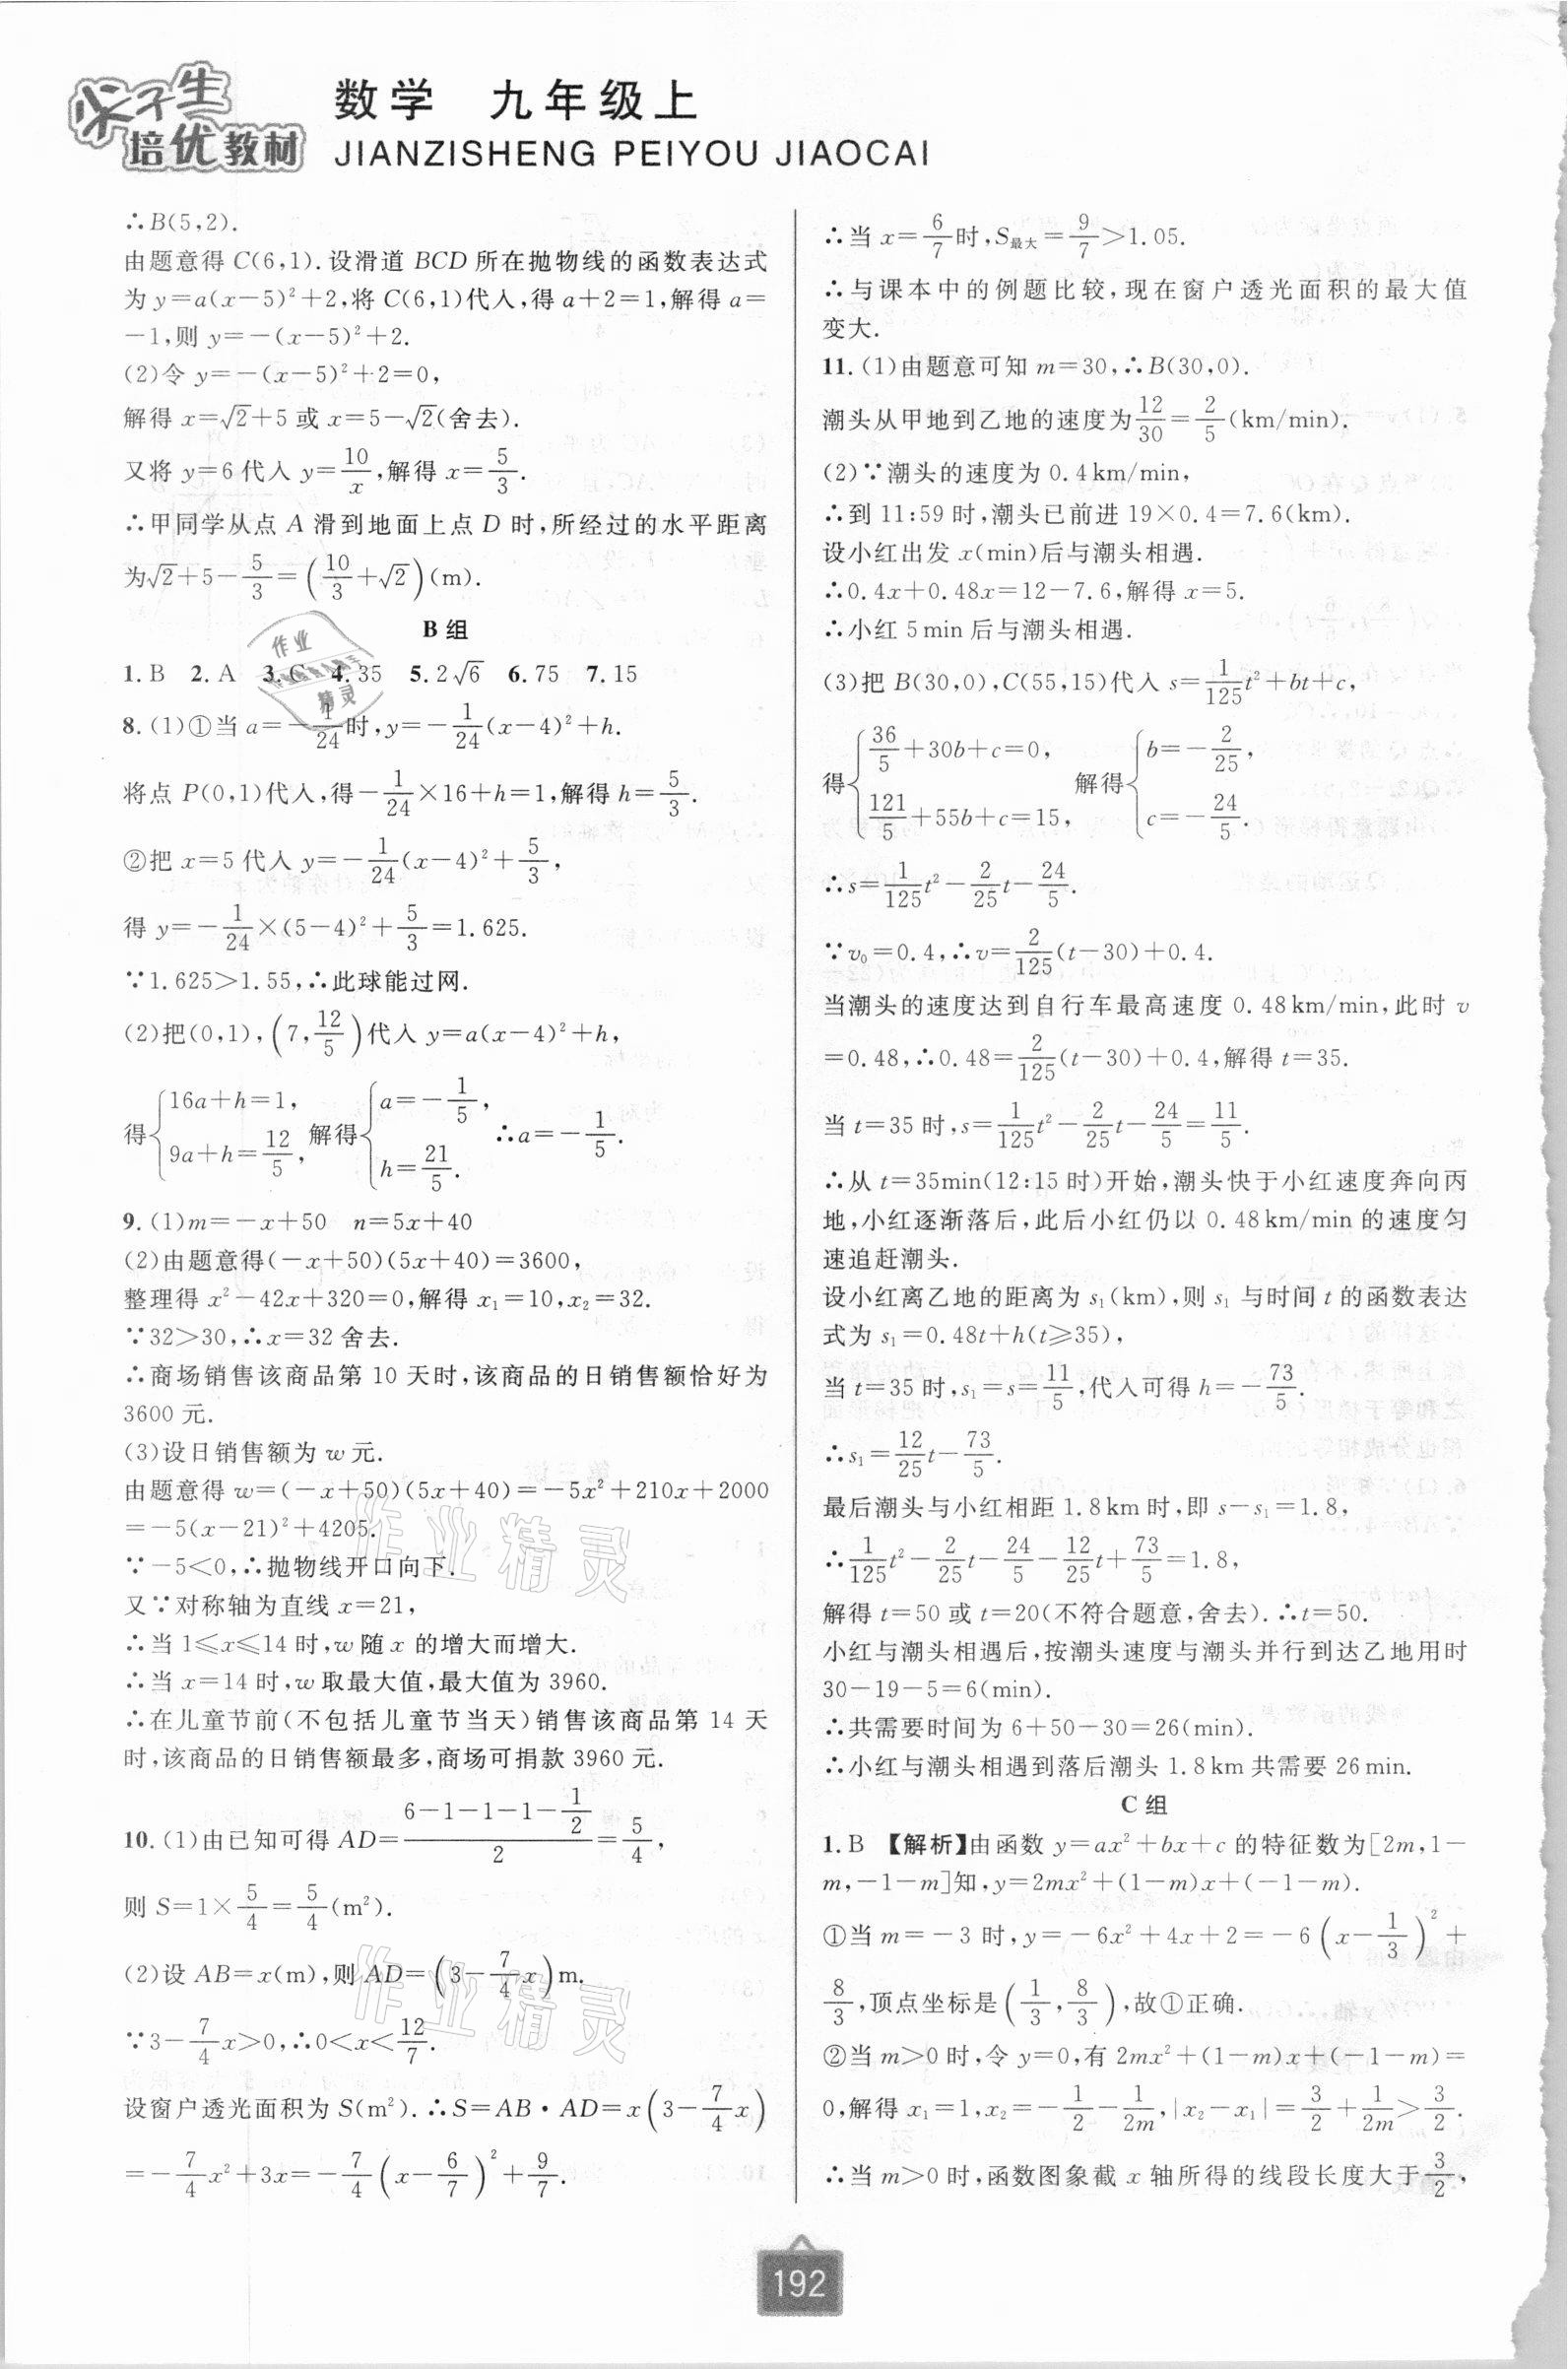 尖子生
培优教材
数学 九年级上
JIANZISHENG PEIYOU JIAOCAI
∴B(5,2).
由题意得 C(6,1).设滑道 BCD 所在抛物线的函数表达式
为 y=a(x-5)²+2,将 C(6,1)代入,得 a+2=1,解得 a=
-1,则 y=-(x-5)²+2.
(2)令 y=-(x-5)²+2=0,
解得 x=√2+5 或 x=5-√2(舍去).
又将 y=6 代入 y=10/x,解得 x=5/3.
∴甲同学从点 A 滑到地面上点 D 时,所经过的水平距离
为√2+5-5/3=(10/3+√2)(m).
B 组
1.B 2.A 3.C 4.35 5.2√6 6.75 7.15
8.(1)①当 a=-1/24时,y=-1/24(x-4)²+h.
将点 P(0,1)代入,得-1/24×16+h=1,解得 h=5/3.
②把 x=5 代入 y=-1/24(x-4)²+5/3,
得 y=-1/24×(5-4)²+5/3=1.625.
∵1.625>1.55,∴此球能过网.
(2)把(0,1),(7,12/5)代入 y=a(x-4)²+h,
得{16a+h=1, 9a+h=12/5, 解得{a=-1/5, h=21/5. ∴a=-1/5.
9.(1)m=-x+50 n=5x+40
(2)由题意得(-x+50)(5x+40)=3600,
整理得 x²-42x+320=0,解得 x₁=10,x₂=32.
∵32>30,∴x=32 舍去.
∴商场销售该商品第 10 天时,该商品的日销售额恰好为
3600 元.
(3)设日销售额为 w 元.
由题意得 w=(-x+50)(5x+40)=-5x²+210x+2000
=-5(x-21)²+4205.
∵-5<0,∴抛物线开口向下.
又∵对称轴为直线 x=21,
∴当 1≤x≤14 时,w 随 x 的增大而增大.
∴当 x=14 时,w 取最大值,最大值为 3960.
∴在儿童节前(不包括儿童节当天)销售该商品第 14 天
时,该商品的日销售额最多,商场可捐款 3960 元.
10.(1)由已知可得 AD=(6-1-1-1-1/2)/2=5/4,
则 S=1×5/4=5/4(m²).
(2)设 AB=x(m),则 AD=(3-7/4x)m.
∵3-7/4x>0,∴0<x<12/7.
设窗户透光面积为 S(m²).∴S=AB·AD=x(3-7/4x)
=-7/4x²+3x=-7/4(x-6/7)²+9/7.
∴当 x=6/7时,S最大=9/7>1.05.
∴与课本中的例题比较,现在窗户透光面积的最大值
变大.
11.(1)由题意可知 m=30,∴B(30,0).
潮头从甲地到乙地的速度为12/30=2/5(km/min).
(2)∵潮头的速度为 0.4km/min,
∴到 11:59 时,潮头已前进 19×0.4=7.6(km).
设小红出发 x(min)后与潮头相遇.
∴0.4x+0.48x=12-7.6,解得 x=5.
∴小红 5min 后与潮头相遇.
(3)把 B(30,0),C(55,15)代入 s=1/125t²+bt+c,
得{36/5+30b+c=0, 121/5+55b+c=15, 解得{b=-2/25, c=-24/5.
∴s=1/125t²-2/25t-24/5.
∵v₀=0.4,∴v=2/125(t-30)+0.4.
当潮头的速度达到自行车最高速度 0.48km/min,此时 v
=0.48,∴0.48=2/125(t-30)+0.4,解得 t=35.
当 t=35 时,s=1/125t²-2/25t-24/5=11/5.
∴从 t=35min(12:15 时)开始,潮头快于小红速度奔向丙
地,小红逐渐落后,此后小红仍以 0.48km/min 的速度匀
速追赶潮头.
设小红离乙地的距离为 s₁(km),则 s₁ 与时间 t 的函数表达
式为 s₁=0.48t+h(t≥35),
当 t=35 时,s₁=s=11/5,代入可得 h=-73/5.
∴s₁=12/25t-73/5.
最后潮头与小红相距 1.8km 时,即 s-s₁=1.8,
∴1/125t²-2/25t-24/5-12/25t+73/5=1.8,
解得 t=50 或 t=20(不符合题意,舍去).∴t=50.
小红与潮头相遇后,按潮头速度与潮头并行到达乙地用时
30-19-5=6(min).
∴共需要时间为 6+50-30=26(min).
∴小红与潮头相遇到落后潮头 1.8km 共需要 26min.
C 组
1.B 【解析】由函数 y=ax²+bx+c 的特征数为[2m,1-
m,-1-m]知,y=2mx²+(1-m)x+(-1-m).
①当 m=-3 时,y=-6x²+4x+2=-6(x-1/3)²+
8/3,顶点坐标是(1/3,8/3),故①正确.
②当 m>0 时,令 y=0,有 2mx²+(1-m)x+(-1-m)=
0,解得 x₁=1,x₂=-1/2-1/2m,|x₂-x₁|=3/2+1/2m>3/2.
∴当 m>0 时,函数图象截 x 轴所得的线段长度大于3/2,
192
作业
精灵
作业精灵
作业精灵